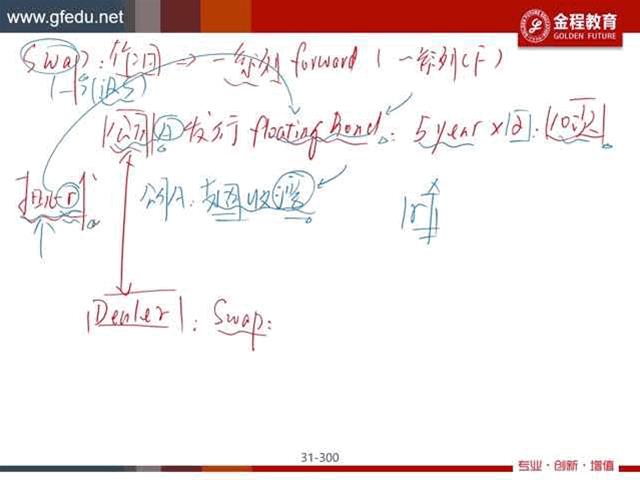 www.gfedu.net
金程教育
GOLDEN FUTURE
Swap: 签订 → 一系列 forward (一系列CF)
公司 A 发行 floating Bond: 5 year × 12:
担心 r↑
公司A: 支固 收浮
r
Dealer : Swap:
31-300
专业·创新·增值